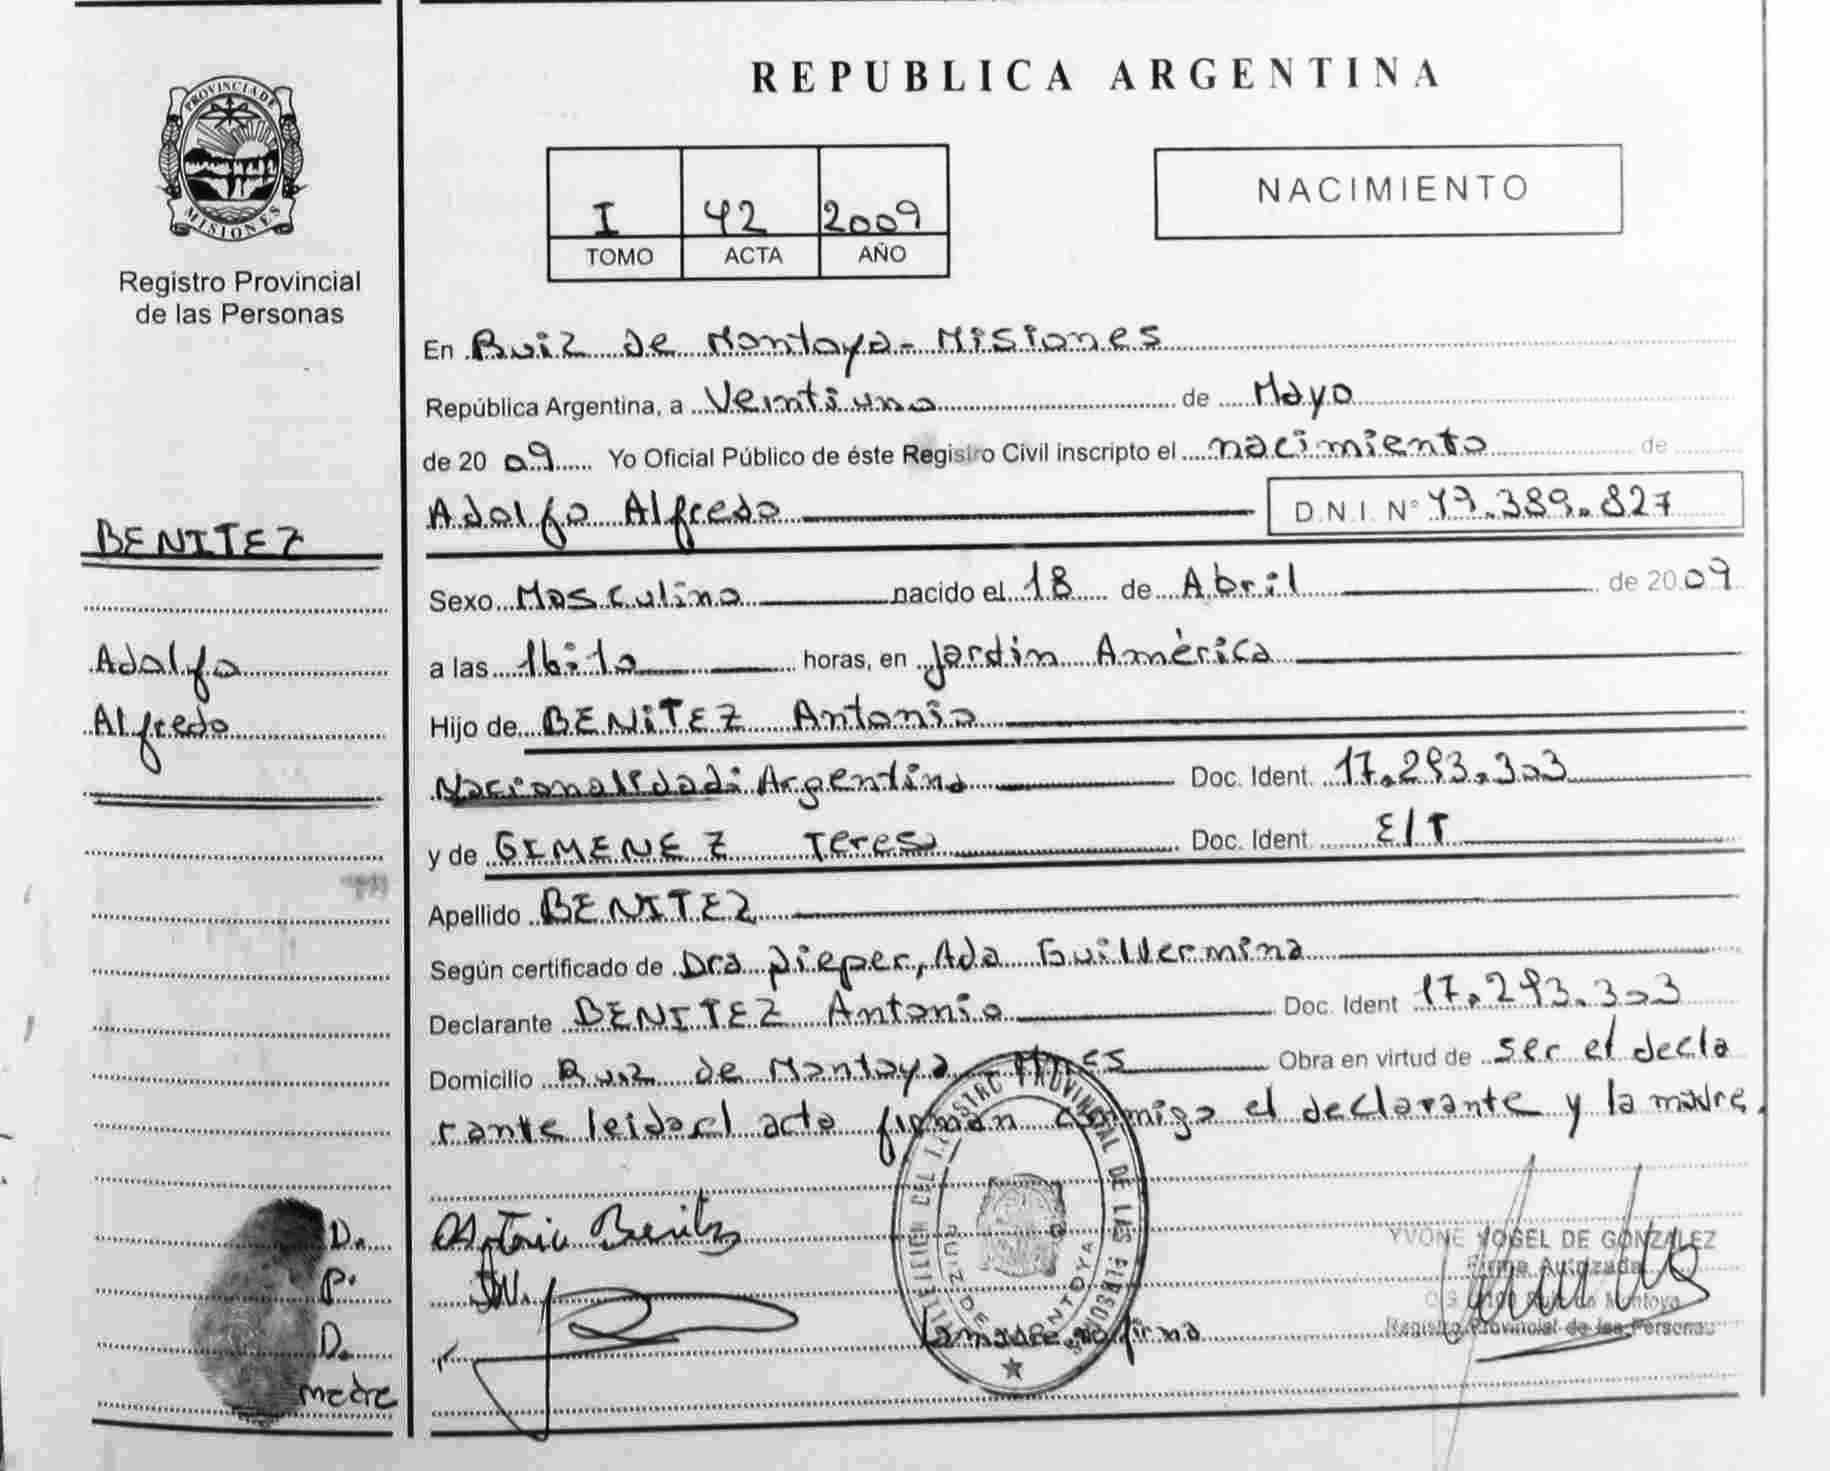 PROVINCIA DE
MISIONES
Registro Provincial
de las Personas
BENITEZ
Adolfo
Alfredo
D.
P.
D.
madre
REPUBLICA ARGENTINA
I 42 2009
TOMO ACTA AÑO
NACIMIENTO
En Ruiz de Montoya - Misiones
República Argentina, a Veintiuno de Mayo
de 20 09 Yo Oficial Público de éste Registro Civil inscripto el nacimiento de
Adolfo Alfredo D.N.I. N° 49.389.827
Sexo Masculino nacido el 18 de Abril de 2009
a las 16:10 horas, en Jardín América
Hijo de BENITEZ Antonio
Nacionalidad: Argentino Doc. Ident. 17.293.303
y de GIMENEZ Teresa Doc. Ident. E/T
Apellido BENITEZ
Según certificado de Dra Dieper, Ada Guillermina
Declarante BENITEZ Antonio Doc. Ident 17.293.303
Domicilio Ruiz de Montoya - Mnes Obra en virtud de ser el decla
rante leida el acta firman conmigo el declarante y la madre.
Antonio Benitez
La madre no firma
REGISTRO PROVINCIAL DE LAS PERSONAS
RUIZ DE MONTOYA
YVONE VOGEL DE GONZALEZ
Firma Autorizada
Ruiz de Montoya
Registro Provincial de las Personas